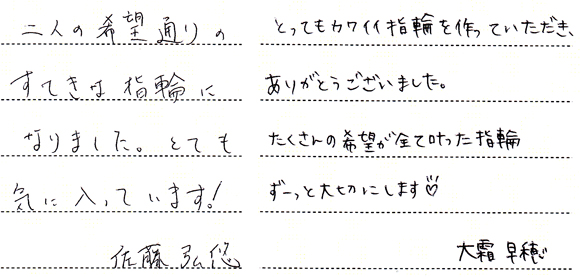 二人の希望通りの
すてきな指輪に
なりました。とても
気に入っています!
佐藤弘悠
とってもカワイイ指輪を作っていただき、
ありがとうございました。
たくさんの希望が全て叶った指輪
ずーっと大切にします♡
大霜 早穂